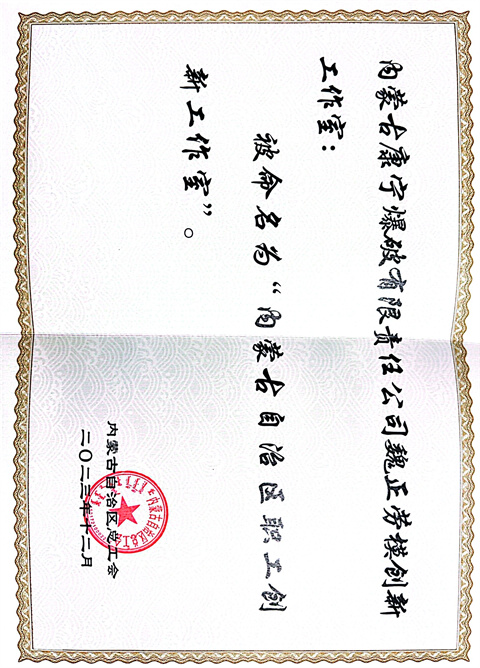 内蒙古康宁爆破有限责任公司魏正劳模创新
工作室：
被命名为“内蒙古自治区职工创
新工作室”。
内蒙古自治区总工会
内蒙古自治区总工会
二〇二三年十二月